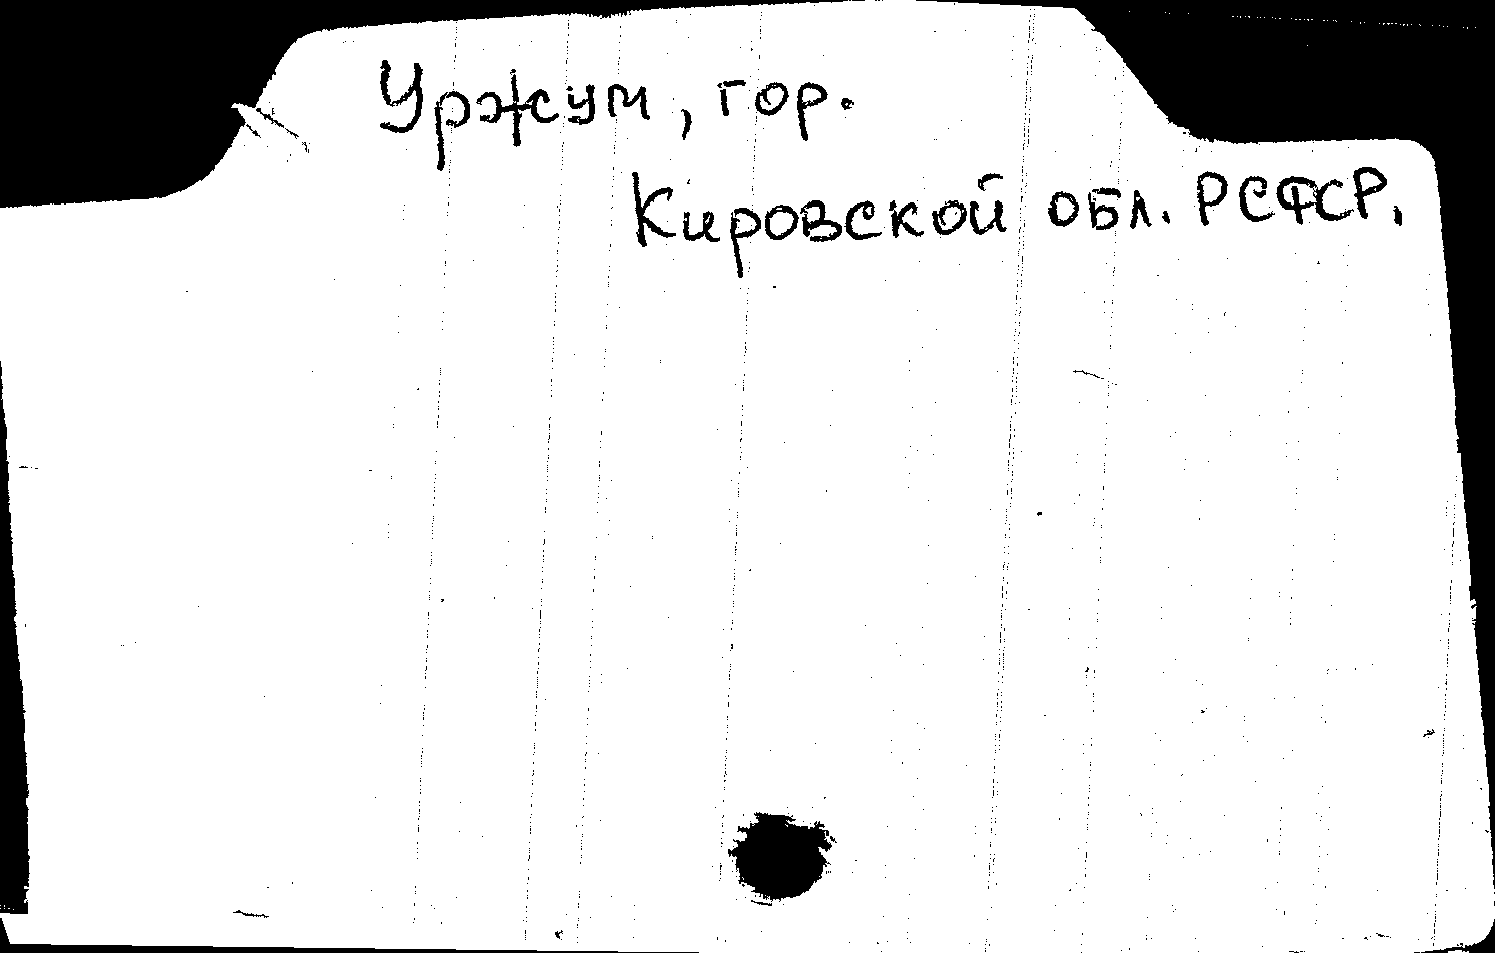 Уржум, гор.
Кировской обл. РСФСР.